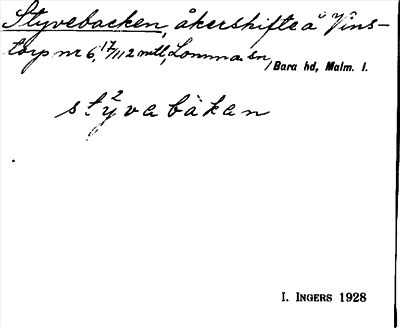 Styvebacken, åkerskifte å Vins-
torp nr 6, 17/112 mtl, Lomma sn, Bara hd, Malm. l.
st²yvabàkan
I. INGERS 1928